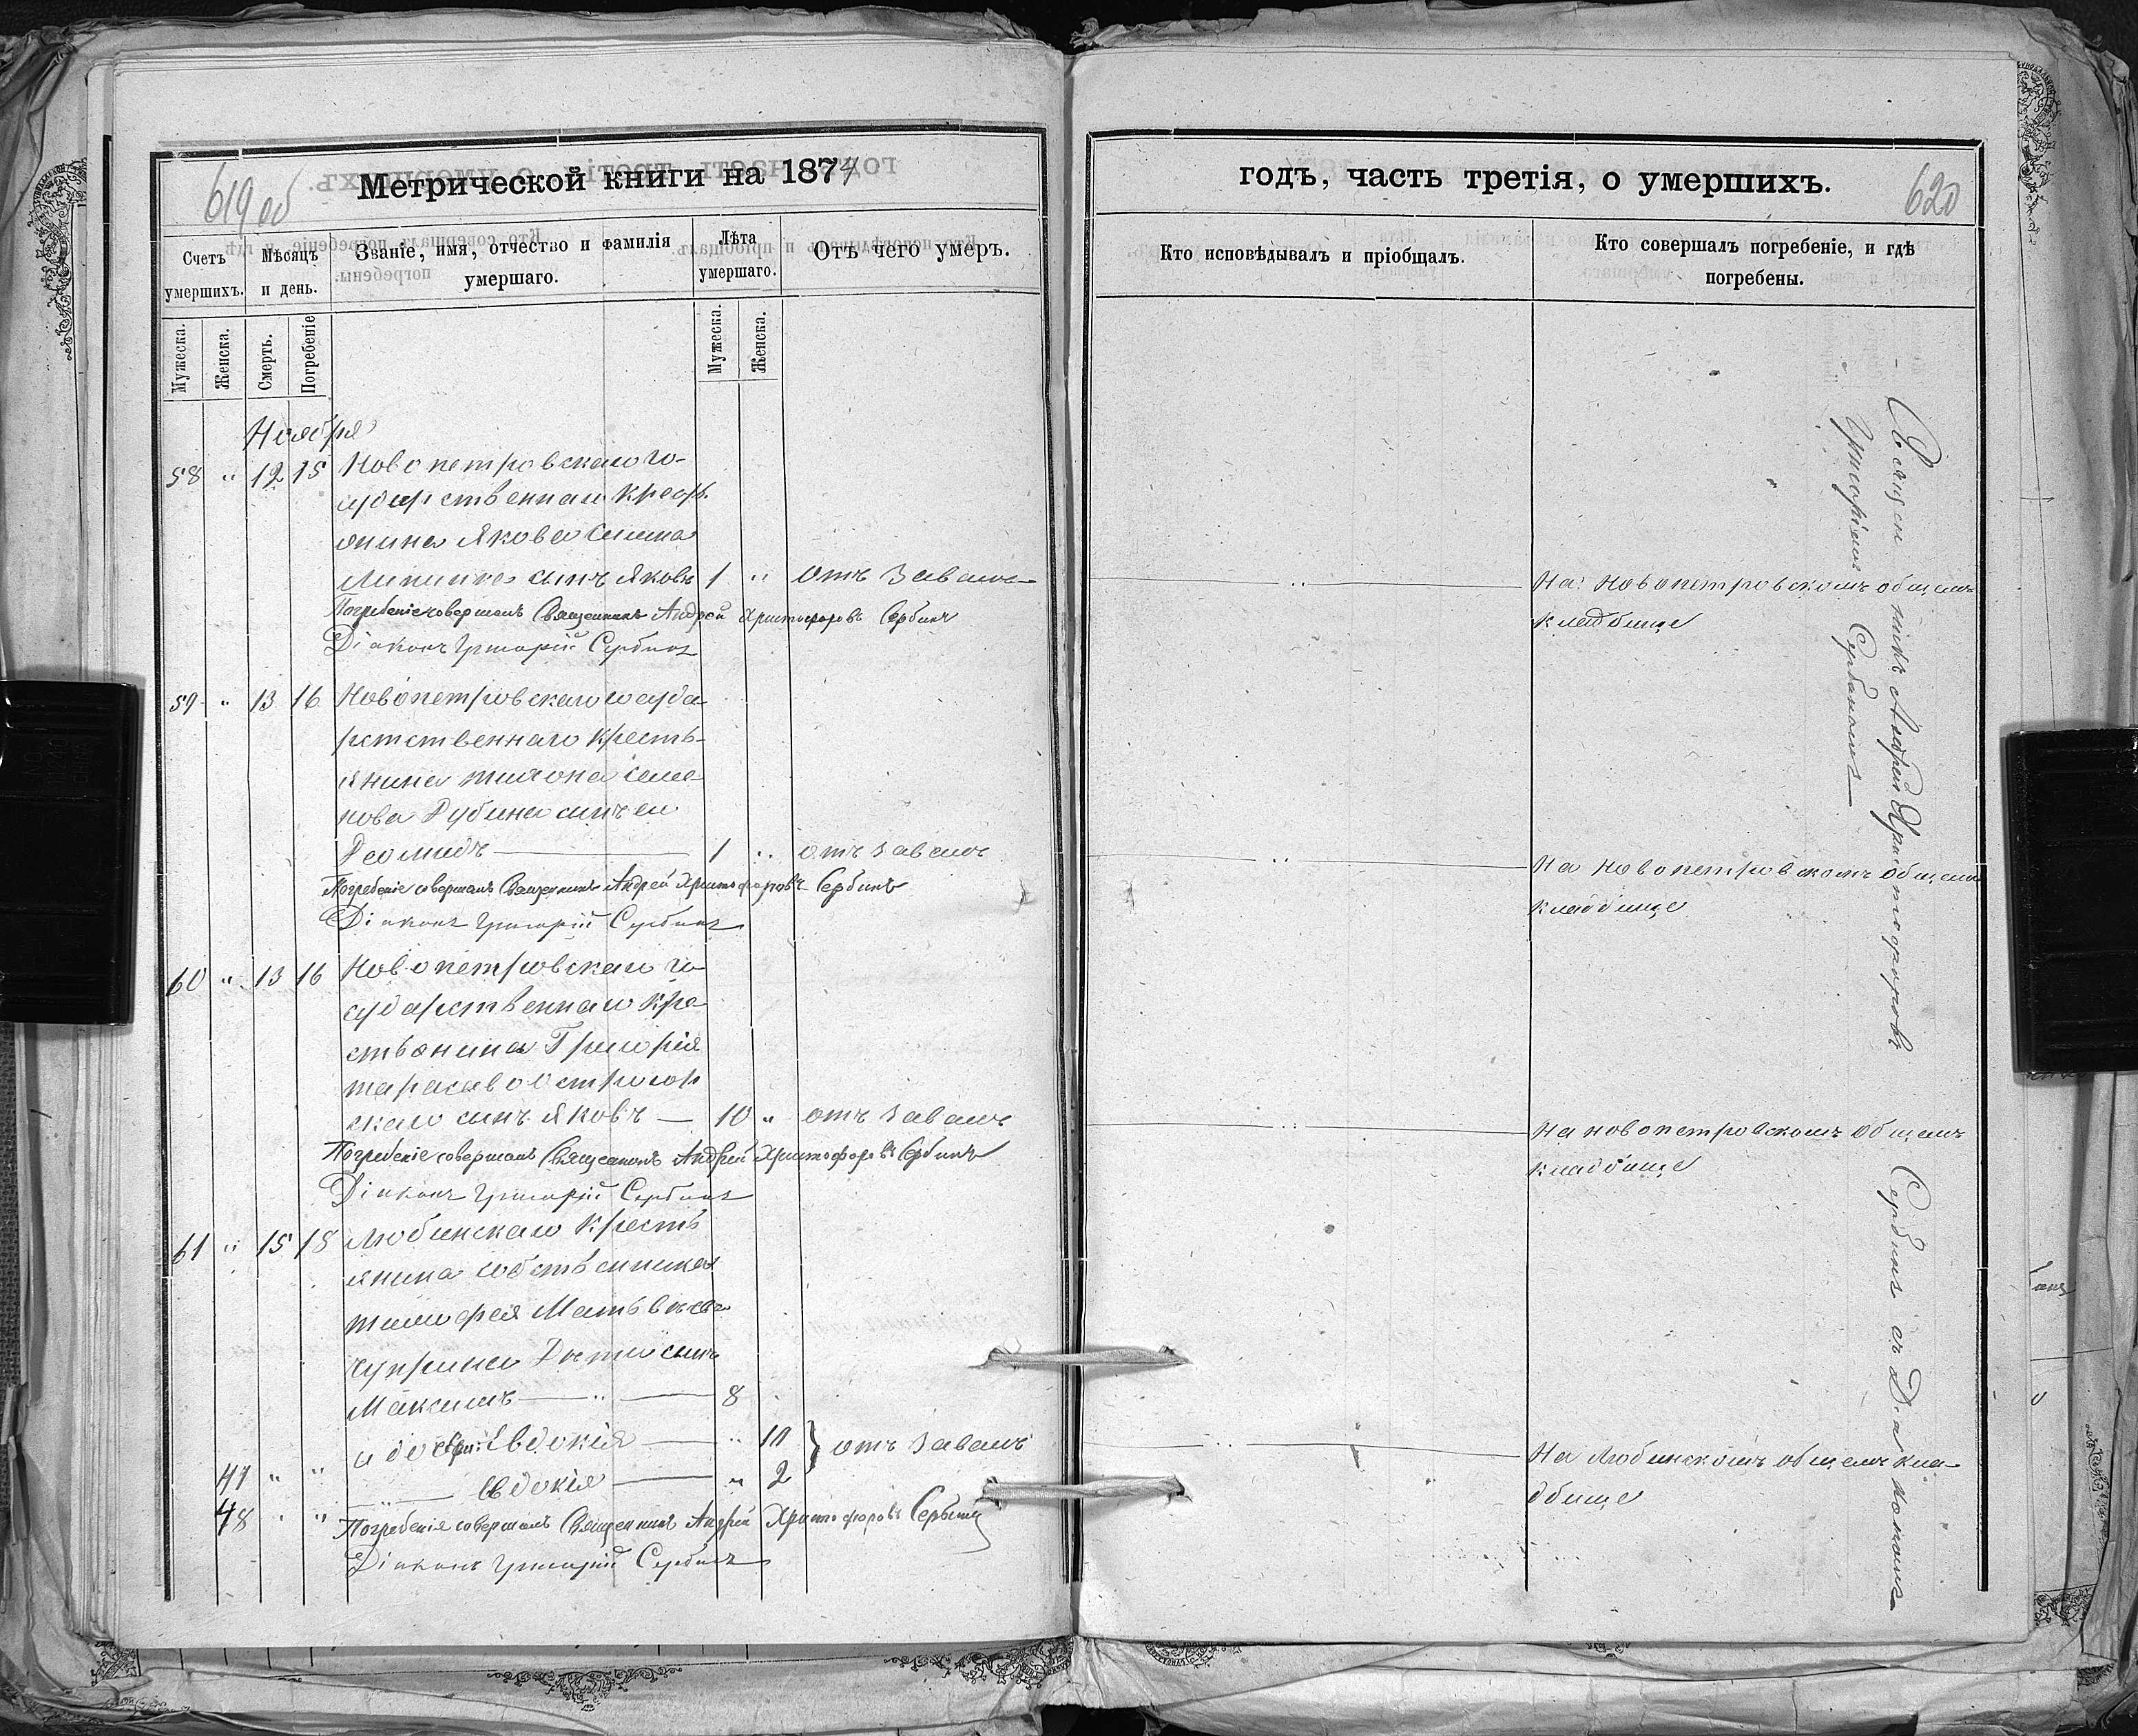 619 об
Метрической книги на 1874
Счетъ умершихъ.
Мѣсяцъ и день.
Званіе, имя, отчество и фамилія умершаго.
Лѣта умершаго.
Отъ чего умеръ.
Мужеска.
Женска.
Смерть.
Погребеніе
Мужеска.
Женска.
Ноября
58 " 12 15 Новопетровскаго го-
сударственнаго крест
янина Якова
сынъ Яковъ 1 " отъ
Погребеніе совершалъ Священникъ Андрей Христофоровъ Сербинъ
Діаконъ Григорій Сербинъ
59 " 13 16 Новопетровскаго госуда
рственнаго кресть-
янина Тихона Семе-
нова Рубина сынъ его
1 " отъ
Погребеніе совершалъ Священникъ Андрей Христофоровъ Сербинъ
Діаконъ Григорій Сербинъ
60 " 13 16 Новопетровскаго го
сударственнаго кре-
стьянина Григорія
Тарасова Острогор
скаго сынъ Яковъ — 10 " отъ
Погребеніе совершалъ Священникъ Андрей Христофоровъ Сербинъ
Діаконъ Григорій Сербинъ
61 " 15 18 Любинскаго кресть
янина собственника
Тимофея Матвѣева
Чуприна Дѣти сынъ
Максимъ — " — 8
и дочери: Евдокія — " 10 } отъ
47 " " — " — Евдокія — " 2
48 " " Погребенія совершалъ Священникъ Андрей Христофоровъ Сербинъ
Діаконъ Григорій Сербинъ
годъ, часть третія, о умершихъ.
620
Кто исповѣдывалъ и пріобщалъ.
Кто совершалъ погребеніе, и гдѣ погребены.
— " — На Новопетровскомъ общемъ
кладбище
— " — На Новопетровскомъ общемъ
кладбище
— " — На Новопетровскомъ общемъ
кладбище
— " — На Любинскомъ общемъ кла-
дбище
Священникъ Андрей Христофоровъ Сербинъ съ Діакономъ
Григоріемъ Сербиномъ